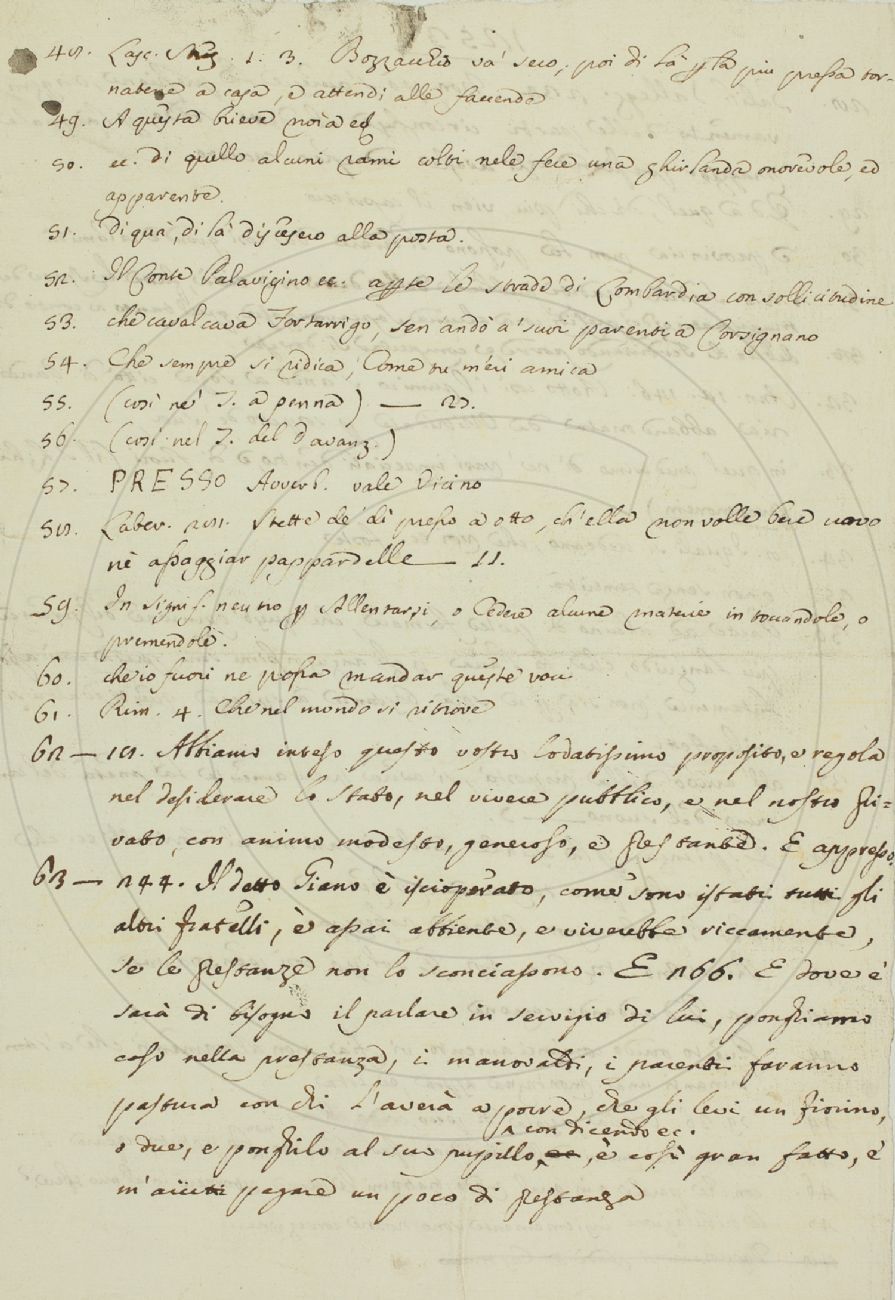 48. Lasc. 1. 3. Bozzacchio va' seco, poi di là p la più pressa tor-
natene a casa, e attendi alle faccende
49. A questa brieve noia ec
50. ec. di quello alcuni rami colti nele fece una ghirlanda onorevole, ed
apparente.
51. di quà, di là discesero alla posta.
52. Il Conte Palavigino ec. le strade di Lombardia con sollicitudine
53. che cavalcava Fortarrigo, sen' andò a' suoi parenti a Corsignano
54. Che sempre si ridica, Come tu m'eri amica
55. (così ne' T. a penna) — 27.
56. (così nel T. del Davanz.)
57. PRESSO Avverb. vale Vicino
58. Laber. 281. Stette de' dì presso a otto, ch'ella non volle bere uovo
nè assaggiar pappardelle — 11.
59. In signif. neutro p Allentarsi, o Cedere alcune materie in toccandole, o
premendole.
60. che io fuori ne possa mandar queste voci
61. Rim. 4. Che nel mondo si ritrove
62 — 18. Abbiamo inteso questo vostro lodatissimo proposito, e regola
nel desiderare lo stato, nel vivere pubblico, e nel nostro pri=
vato, con animo modesto, generoso, e prestante. E appresso
63 — 244. Il detto Giano è iscioperato, come sono istati tutti gli
altri fratelli, è assai abbiente, e viverebbe riccamente,
se le prestanze non lo sconciassono. E 266. E dove è
sarà di bisogno il parlare in servigio di lui, ponghiamo
caso nella prestanza, i manovaldi, i parenti faranno
pastura con chi l'averà a porre, che gli levi un fiorino,
^ con dicendo ec.
o due, e ponghilo al suo pupillo, ec, è così gran fatto, è
m'aiuti pagare un poco di prestanza